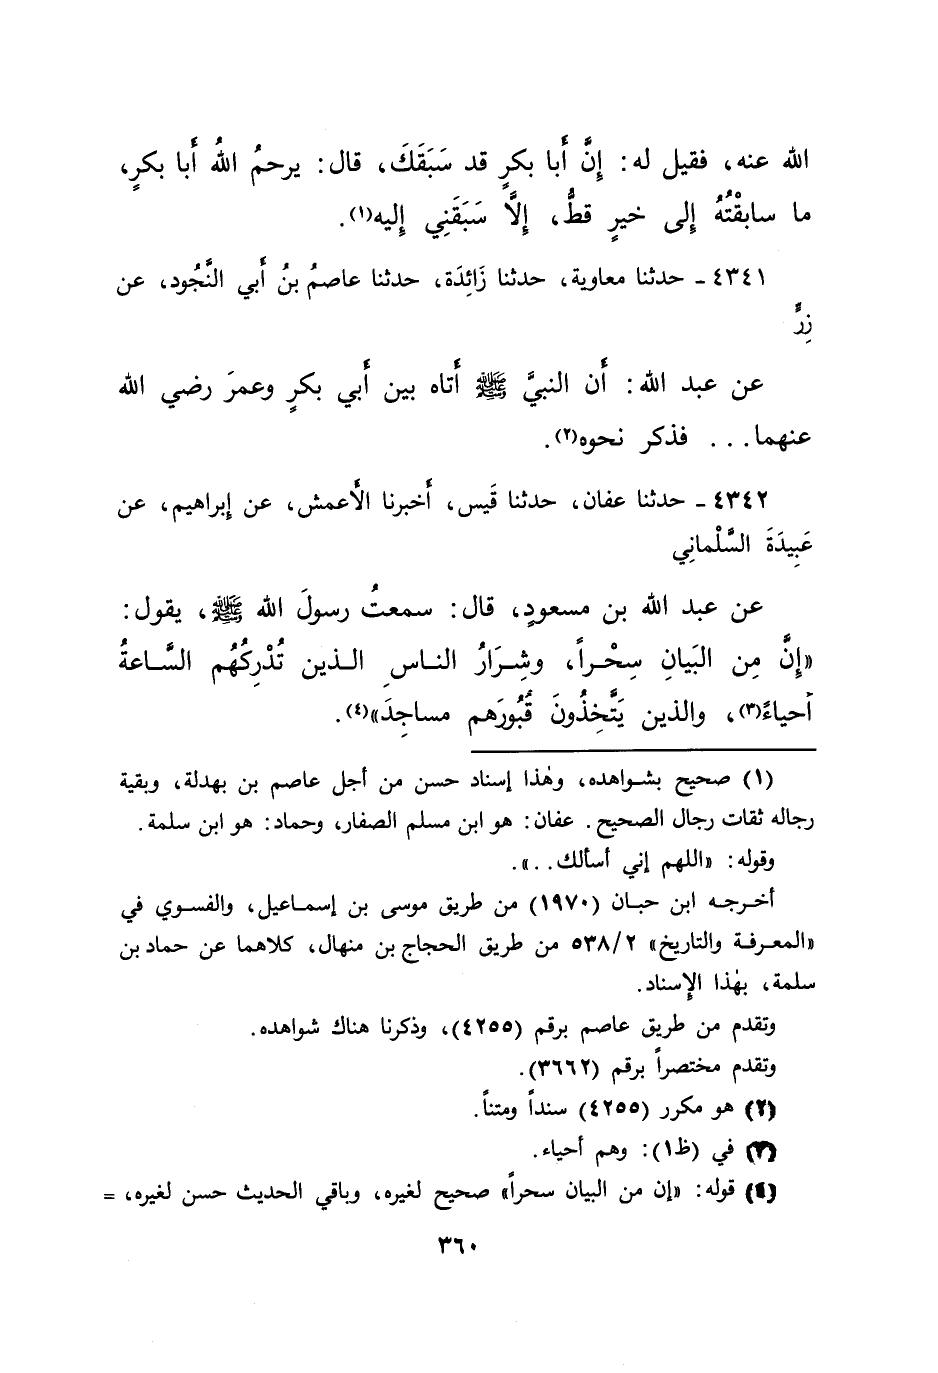 الله عنه، فقيل له: إِنَّ أَبا بكرٍ قد سَبَقَكَ، قال: يرحمُ اللهُ أَبا بكرٍ،
ما سابقْتُهُ إِلى خيرٍ قطُّ، إِلَّا سَبَقَنِي إِليه(١).
٤٣٤١ ـ حدثنا معاوية، حدثنا زَائِدَة، حدثنا عاصمُ بنُ أَبي النَّجُود، عن
زِرٍّ
عن عبد الله: أَن النبيَّ ﷺ أَتاه بين أَبي بكرٍ وعمرَ رضي الله
عنهما... فذكر نحوه(٢).
٤٣٤٢ ـ حدثنا عفان، حدثنا قَيس، أَخبرنا الأَعمش، عن إِبراهيم، عن
عَبِيدَةَ السَّلْمانِي
عن عبد الله بن مسعودٍ، قال: سمعتُ رسولَ الله ﷺ، يقول:
«إِنَّ مِن البَيانِ سِحْراً، وشِرَارُ الناسِ الذين تُدْرِكُهُم السَّاعةُ
أَحياءً(٣)، والذين يَتَّخِذُونَ قُبُورَهم مساجِدَ»(٤).
(١) صحيح بشواهده، وهٰذا إسناد حسن من أجل عاصم بن بهدلة، وبقية
رجاله ثقات رجال الصحيح. عفان: هو ابن مسلم الصفار، وحماد: هو ابن سلمة.
وقوله: «اللهم إني أسألك...».
أخرجه ابن حبان (١٩٧٠) من طريق موسى بن إسماعيل، والفسوي في
«المعرفة والتاريخ» ٥٣٨/٢ من طريق الحجاج بن منهال، كلاهما عن حماد بن
سلمة، بهٰذا الإِسناد.
وتقدم من طريق عاصم برقم (٤٢٥٥)، وذكرنا هناك شواهده.
وتقدم مختصراً برقم (٣٦٦٢).
(٢) هو مكرر (٤٢٥٥) سنداً ومتناً.
(٣) في (ظ١): وهم أحياء.
(٤) قوله: «إن من البيان سحراً» صحيح لغيره، وباقي الحديث حسن لغيره، =
٣٦٠